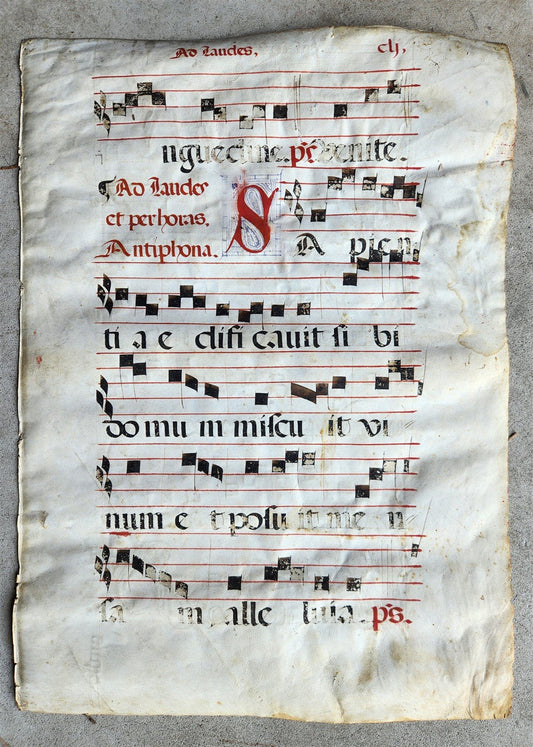 Ad Laudes, clj,
nguecine. ps. venite.
¶Ad Laudes
et per horas.
Antiphona. SA pien
ti a e difi cauit si bi
do mu m miscu it vi
num e t posu it me n
sa m alle luia. ps.